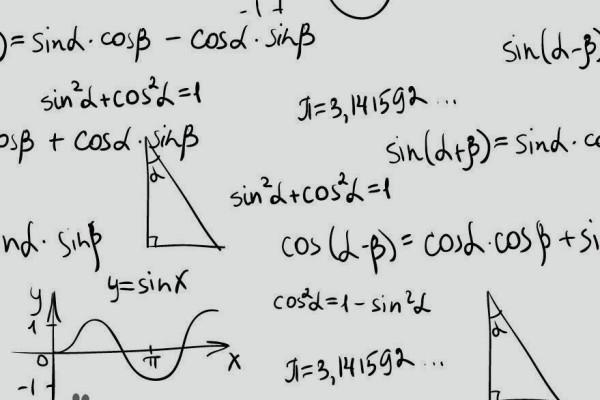 -1
)= sinα·cosβ – cosα·sinβ
sin(α-β)
sin²α+cos²α=1
π=3,141592...
osβ + cosα·sinβ
sin(α+β)= sinα·co
α
sin²α+cos²α=1
nα·sinβ
cos(α-β)= cosα·cosβ+si
y=sinx
cos²α=1-sin²α
y
1
0
π
x
-1
α
π=3,141592...